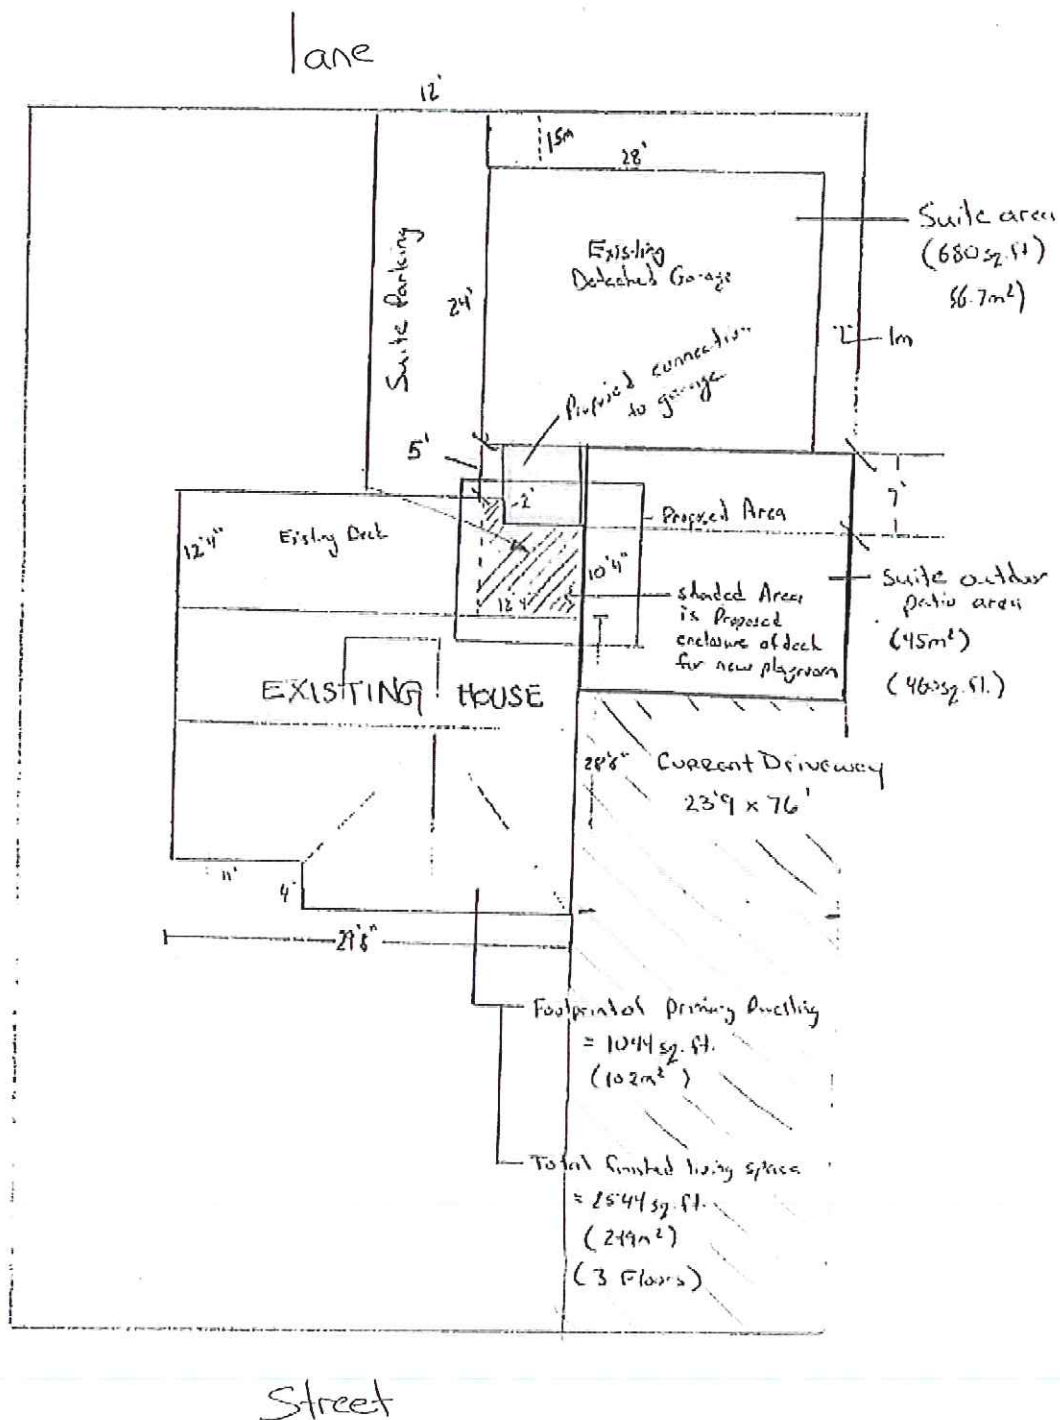 lane
12'
1.5m
28'
Suite area
(680 sq.ft)
56.7m²
Existing
Detached Garage
Suite Parking
24'
1m
Proposed connection
to garage
5'
2'
7'
Proposed Area
12'4"
Existing Deck
10'4"
12'4"
shaded Area
is Proposed
enclosure of deck
for new playroom
Suite outdoor
patio area
(45m²)
(460sq.ft.)
EXISITING HOUSE
28'8"
Current Driveway
23'9 x 76'
11'
4'
29'8"
Footprint of primary Dwelling
= 1044 sq.ft.
(102m²)
Total finished living space
= 2544 sq.ft.
(249m²)
(3 Floors)
Street